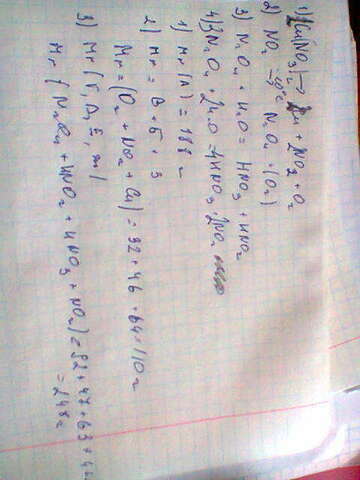 1) Cu(NO₃)₂ → Cu + 2NO₂ + O₂
2) NO₂ → N₂O₄ (O₂)
3) N₂O₄ + H₂O = HNO₃ + HNO₂
4) 3N₂O₄ + 2H₂O = 4HNO₃ + 2NO₂
1) Mr (A) = 188 г
2) Mr = В + Б + З
Mr = (O₂ + NO₂ + Cu) = 32 + 46 + 64 = 110 г
3) Mr (Г, Д, Е,
Mr ( + HNO₂ + HNO₃ + NO₂) = 92 + 47 + 63 + 46
= 248 г